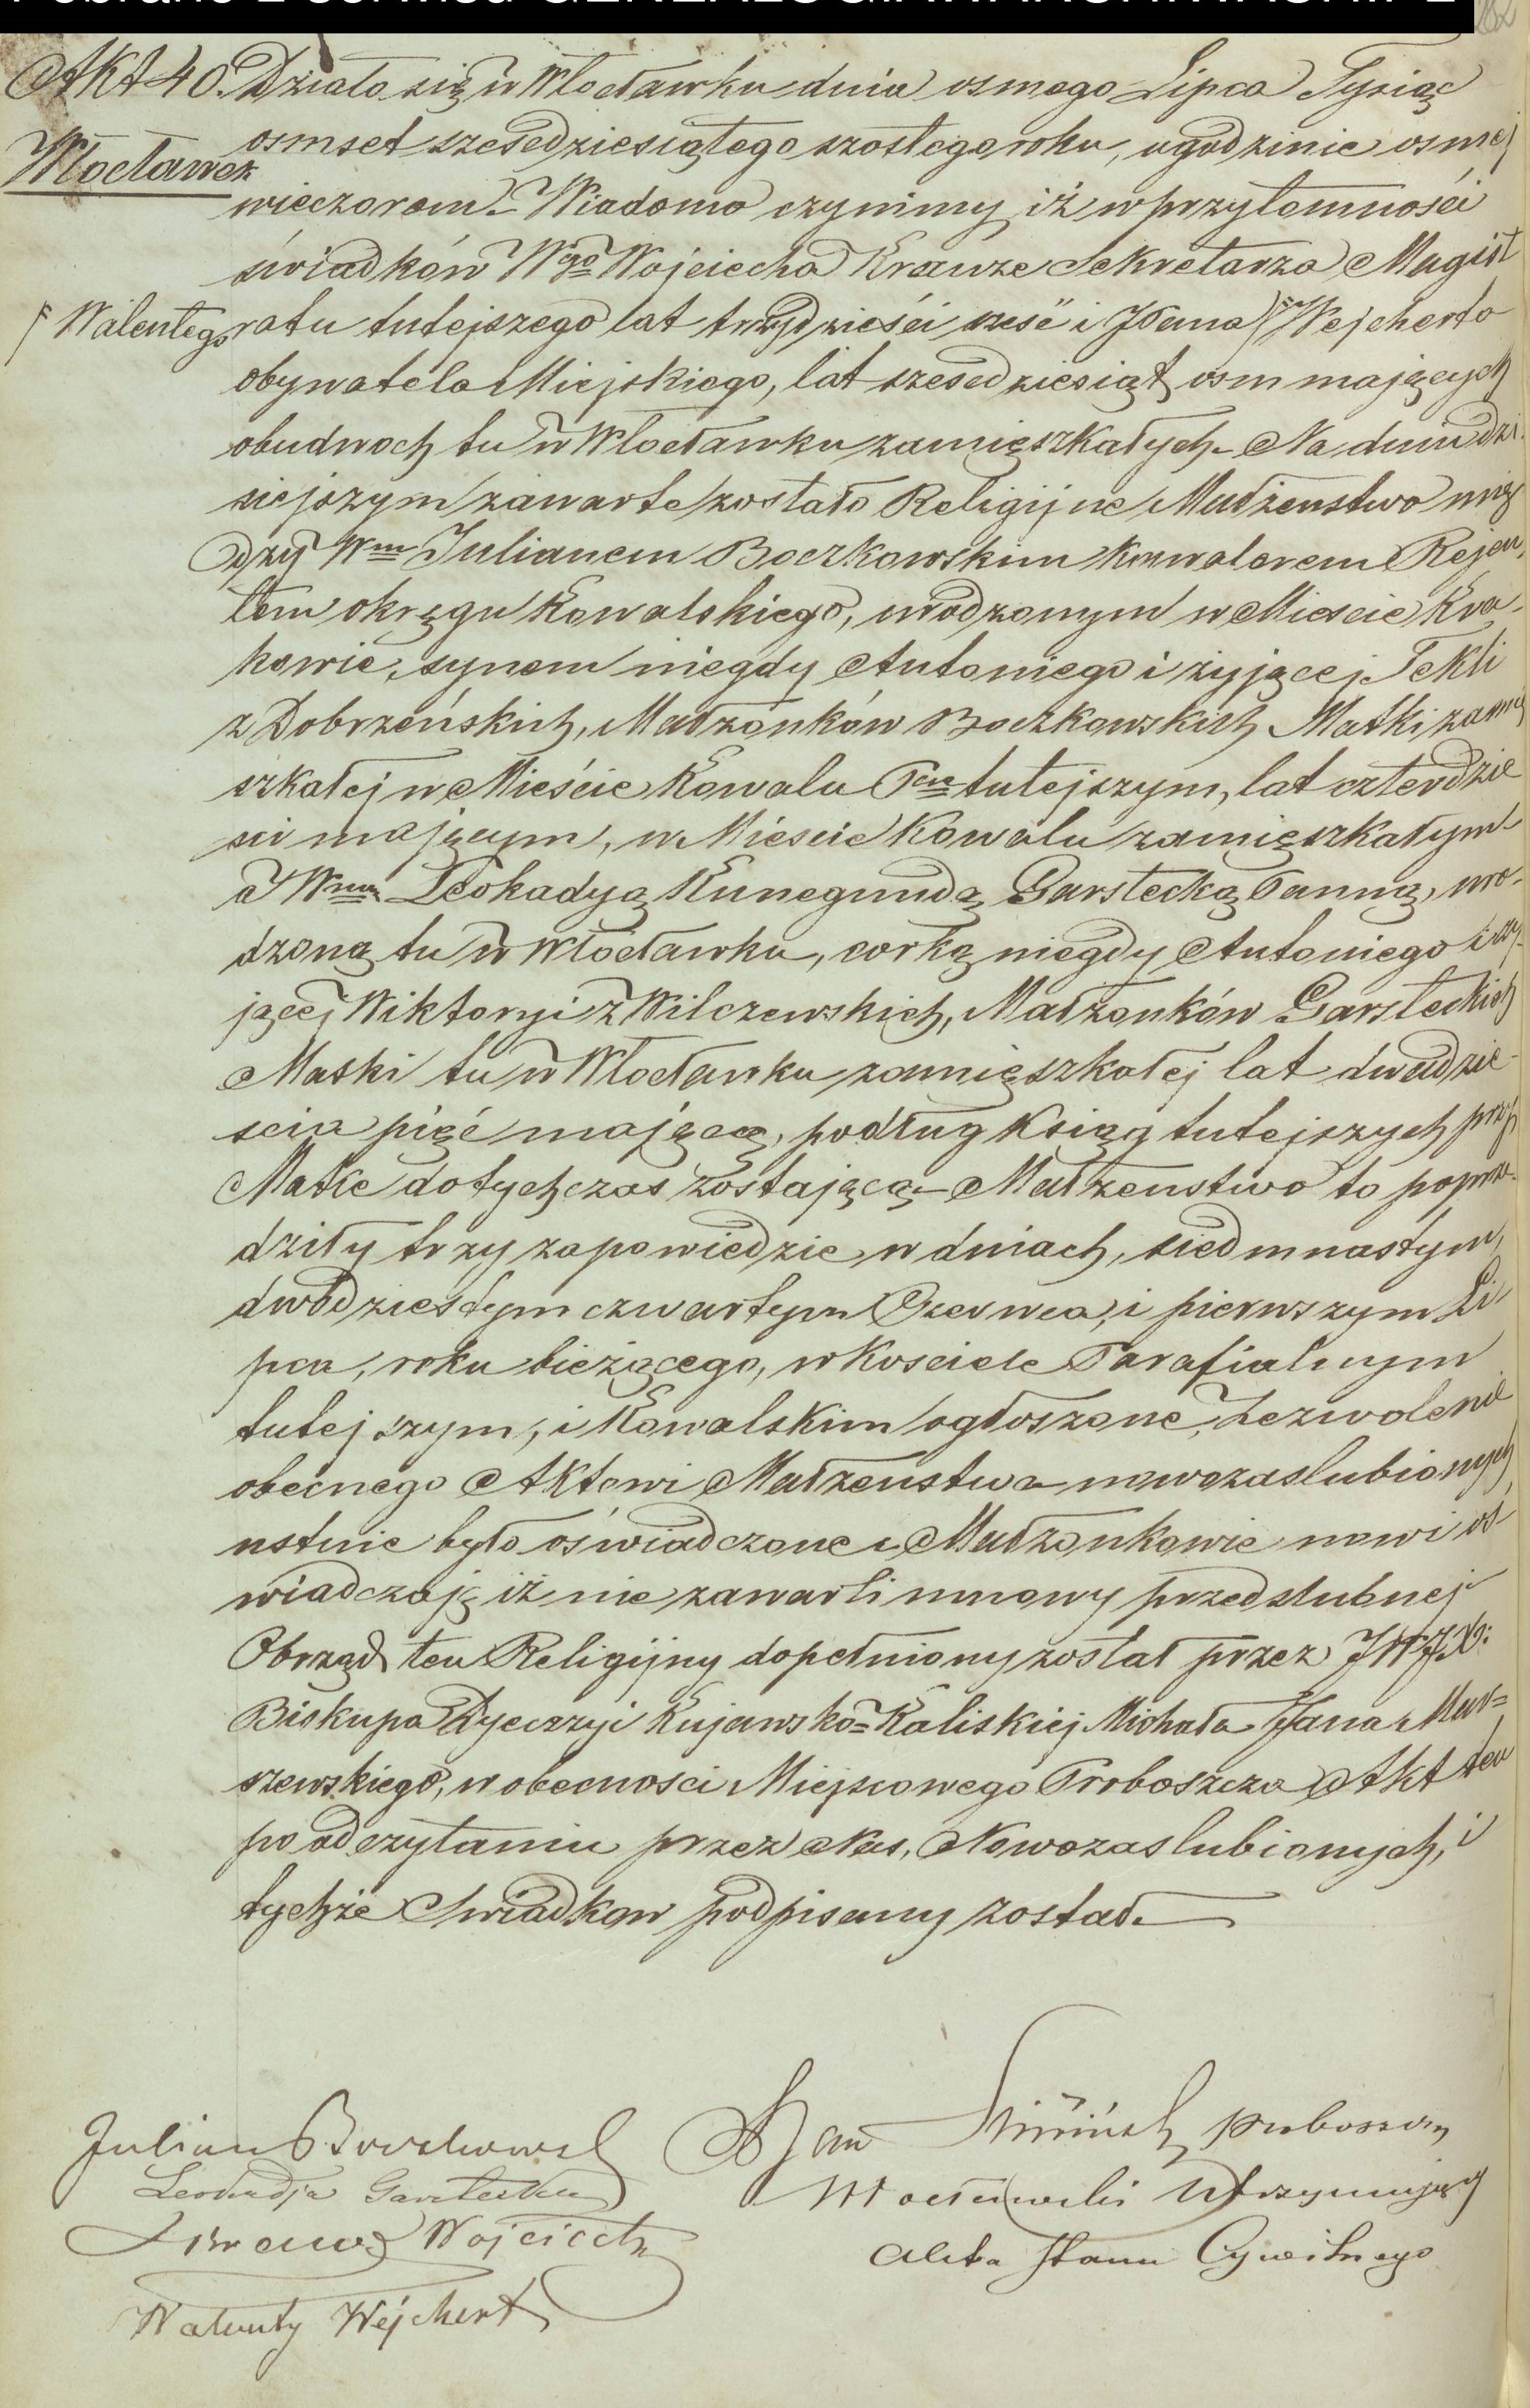 Akt 40. Działo się w Włocławku dnia osmego Lipca Tysiąc
Włocławek
osmset szesedziesiątego szostego roku, o godzinie osmej
wieczorem. Wiadomo czynimy iż w przytomności
świadków Wgo Wojciecha Krauze Sekretarza Magist
ratu tutejszego lat trzydzieści sześć i Pana Wejcherta
Walentego
obywatela Miejskiego, lat szesedziesiąt osm mających
obudwoch tu w Włocławku zamięszkałych. Na dniu dzi
siejszym zawarte zostało Religijne Małżenstwo mię
dzy Wm Julianem Boczkowskim Kawalerem Rejen
tem okręgu Kowalskiego, urodzonym w Mieście Kra-
kowie, synem niegdy Antoniego i żyjącej Tekli
z Dobrzeńskich, Małżonków Boczkowskich Matki zamię
szkałej w Mieście Kowalu Pcie tutejszym, lat czterdzie
sci mającym, w Mieście Kowalu zamięszkałym
a Wną Leokadyą Kunegundą Garstecką Panną, uro-
dzoną tu w Włocławku, corką niegdy Antoniego i ży-
jącej Wiktoryi z Wilczewskich, Małżonków Garsteckich
Matki tu w Włocławku zamięszkałej lat dwadzie-
scia pięć mającą, podług Ksiąg tutejszych przy
Matce dotychczas zostającą Małżenstwo to poprze-
dziły trzy zapowiedzie w dniach, siedmnastym,
dwódziestym czwartym Czerwca, i pierwszym Li
pca, roku bieżącego, w Kosciele Parafialnym
tutejszym, i Kowalskim ogłoszone, Zezwolenie
obecnego Aktowi Małżenstwa nowozaslubionych
ustnie było oświadczone Małżonkowie nowi oś-
wiadczają iż nie zawarli umowy przedslubnej
Obrząd ten Religijny dopełniony został przez JW JX:
Biskupa Dyecezyi Kujawsko=Kaliskiej Michała Jana Mar=
szewskiego, w obecnosci Miejscowego Proboszcza Akt ten
po odczytaniu przez Nas, Nowozaslubionych, i
tychże Swiadkow podpisany został.
Julian Boczkowski
Leokadja Garstecka
Krauze Wojciech
Walenty Wejchert
X Jan proboszcz
Włocławski Utrzymujący
Akta Stanu Cywilnego